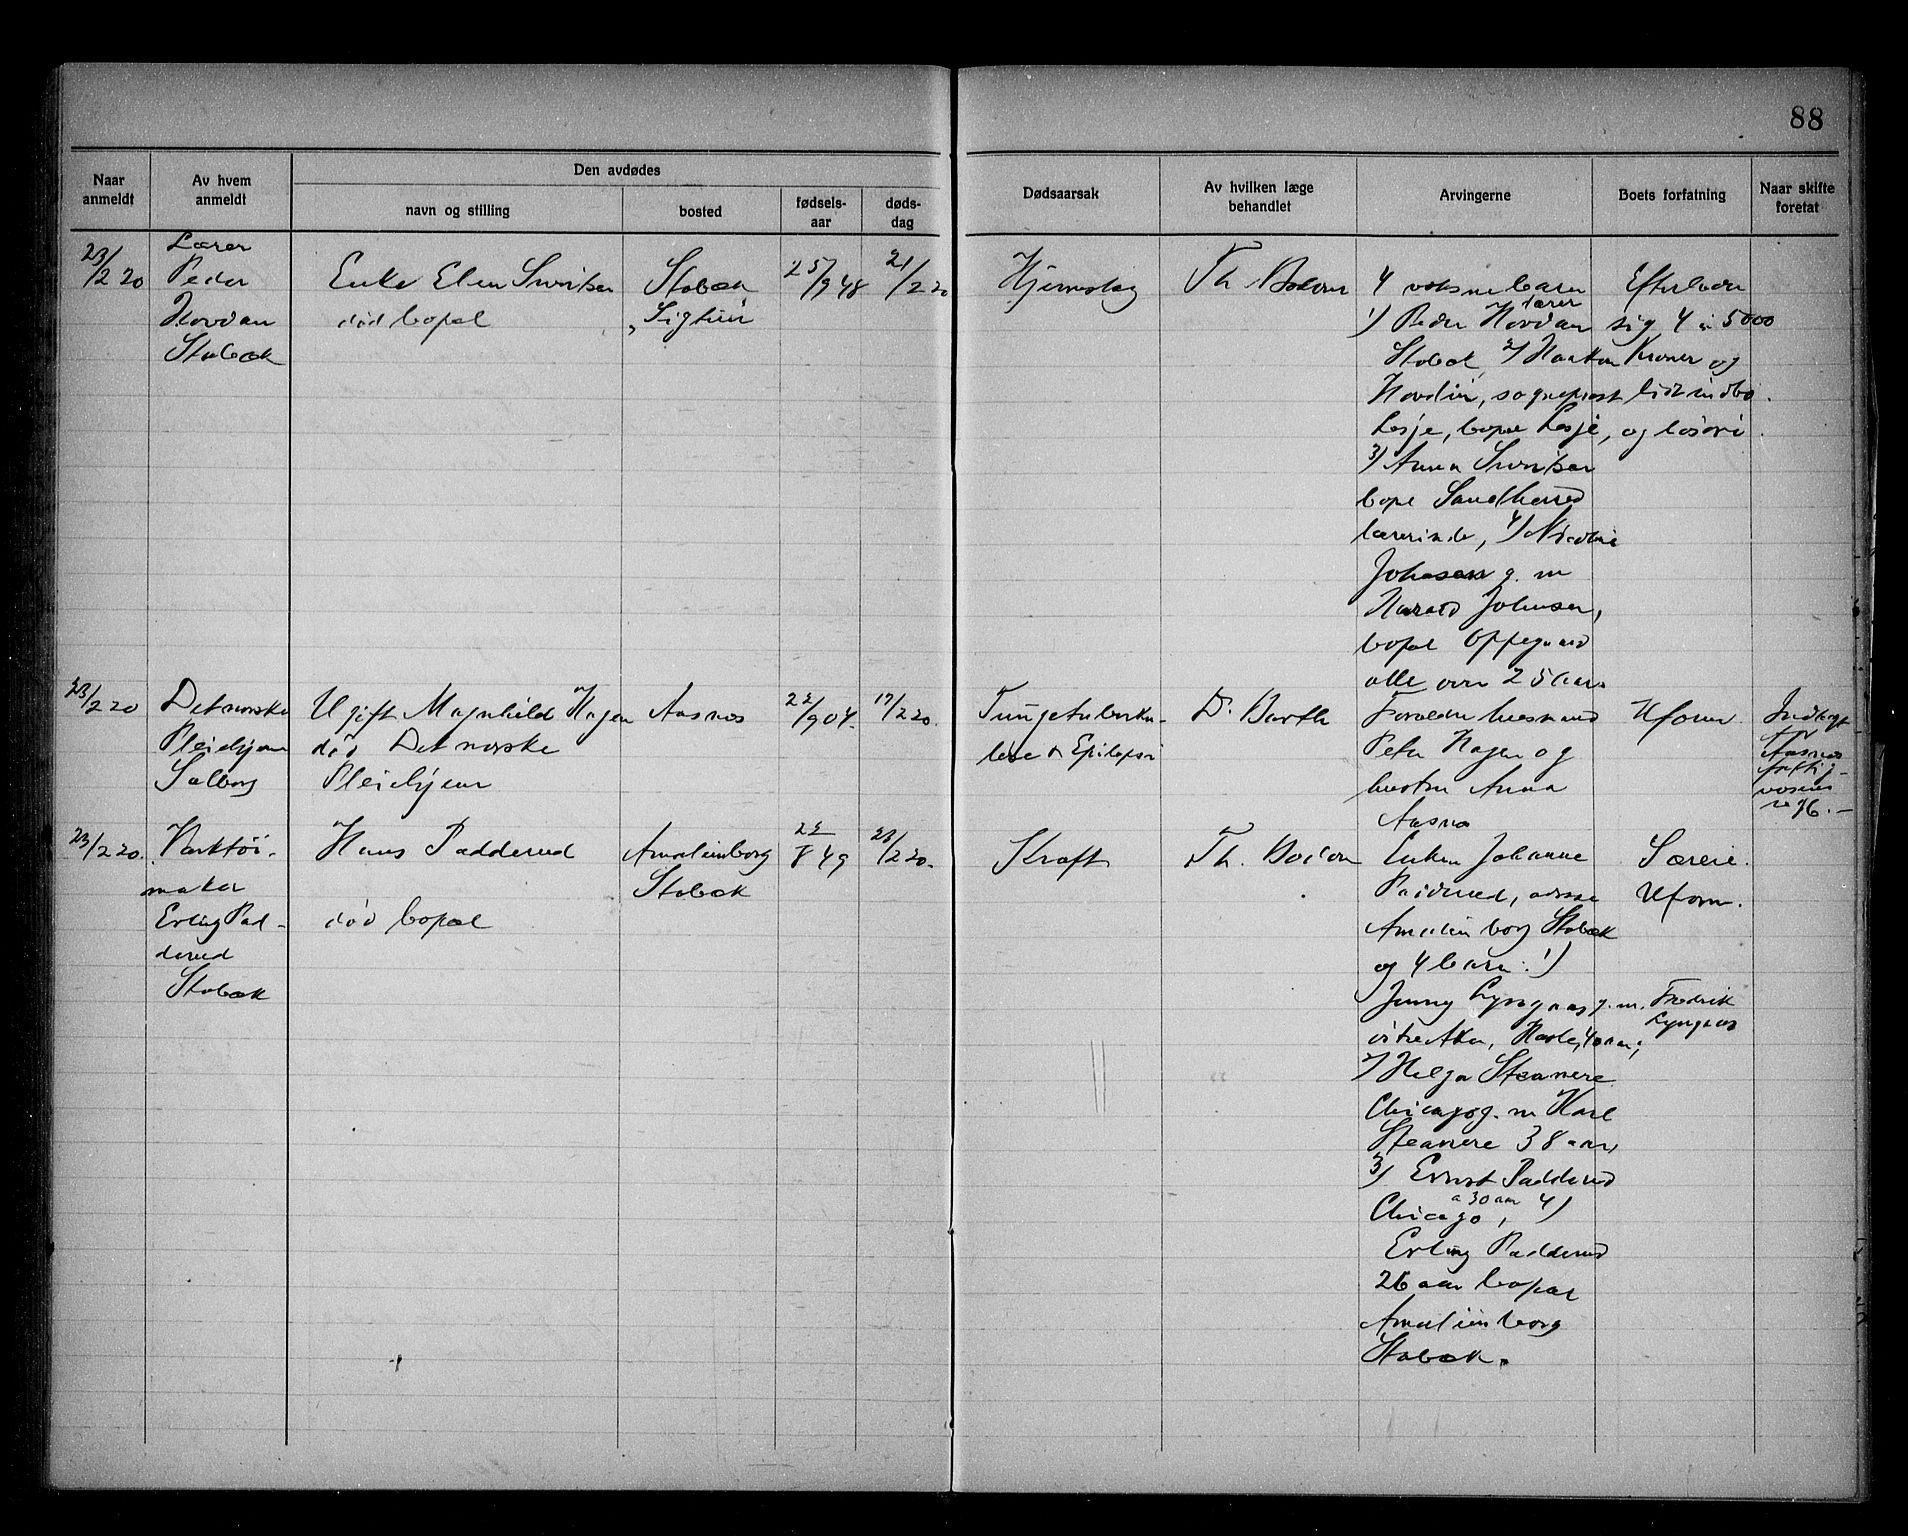 88
Naar anmeldt
Av hvem anmeldt
Den avdødes
navn og stilling
bosted
fødsels-aar
døds-dag
Dødsaarsak
Av hvilken læge behandlet
Arvingerne
Boets forfatning
Naar skifte foretat
23/2 20
Lærer
Peder
Hovdan
Stabæk
Enke Elen Sivertsen
død bopæl
Stabæk
25/9 48
21/2 20
Hjerneslag
Th.
4 voksne barn
1) Peder Hovdan lærer
Stabæk, 2) Haakon
Hovdan, sogneprest
Lesje, bopæl Lesje,
3) Anna Sivertsen
bopæl Sandherred
lærerinde, 4)
Johnsen g. m
Harald Johnsen,
bopæl Oppegaard
alle over 25 aar.
Efterladt
sig 4 a 5000
Kroner og
litt indbo
og løsøre.
23/2 20
Det norske
Pleiehjem
Solberg
Ugift Magnhild Hagen
død Det norske
Pleiehjem
Aasnes
22/9 04.
17/2 20.
Tungetuberku-
lose & Epilepsi
Dr Barth
Forældre husmand
Peter Hagen og
hustru Anna
Aasnes
Uform.
Indbragt
Aasnes
23/2 20.
Verktøi-
maker
Erling Pad-
derud
Stabæk
Hans Padderud
død bopæl
Amalienborg
Stabæk
22/8 49
23/2 20.
Kræft
Th.
Enken Johanne
Padderud, adresse
Amalienborg Stabæk
og 4 barn: 1)
Jenny Lyngaas g. m. Fredrik
Lyngaas
østre Aker, Hasle, 40 aar;
2) Helga Steanere
Chicago g. m Karl
Steanere 38 aar
3) Ernst Padderud
Chicago, a 30 aar 4)
Erling Padderud
26 aar bopæl
Amalienborg
Stabæk.
Særeie.
Uform.